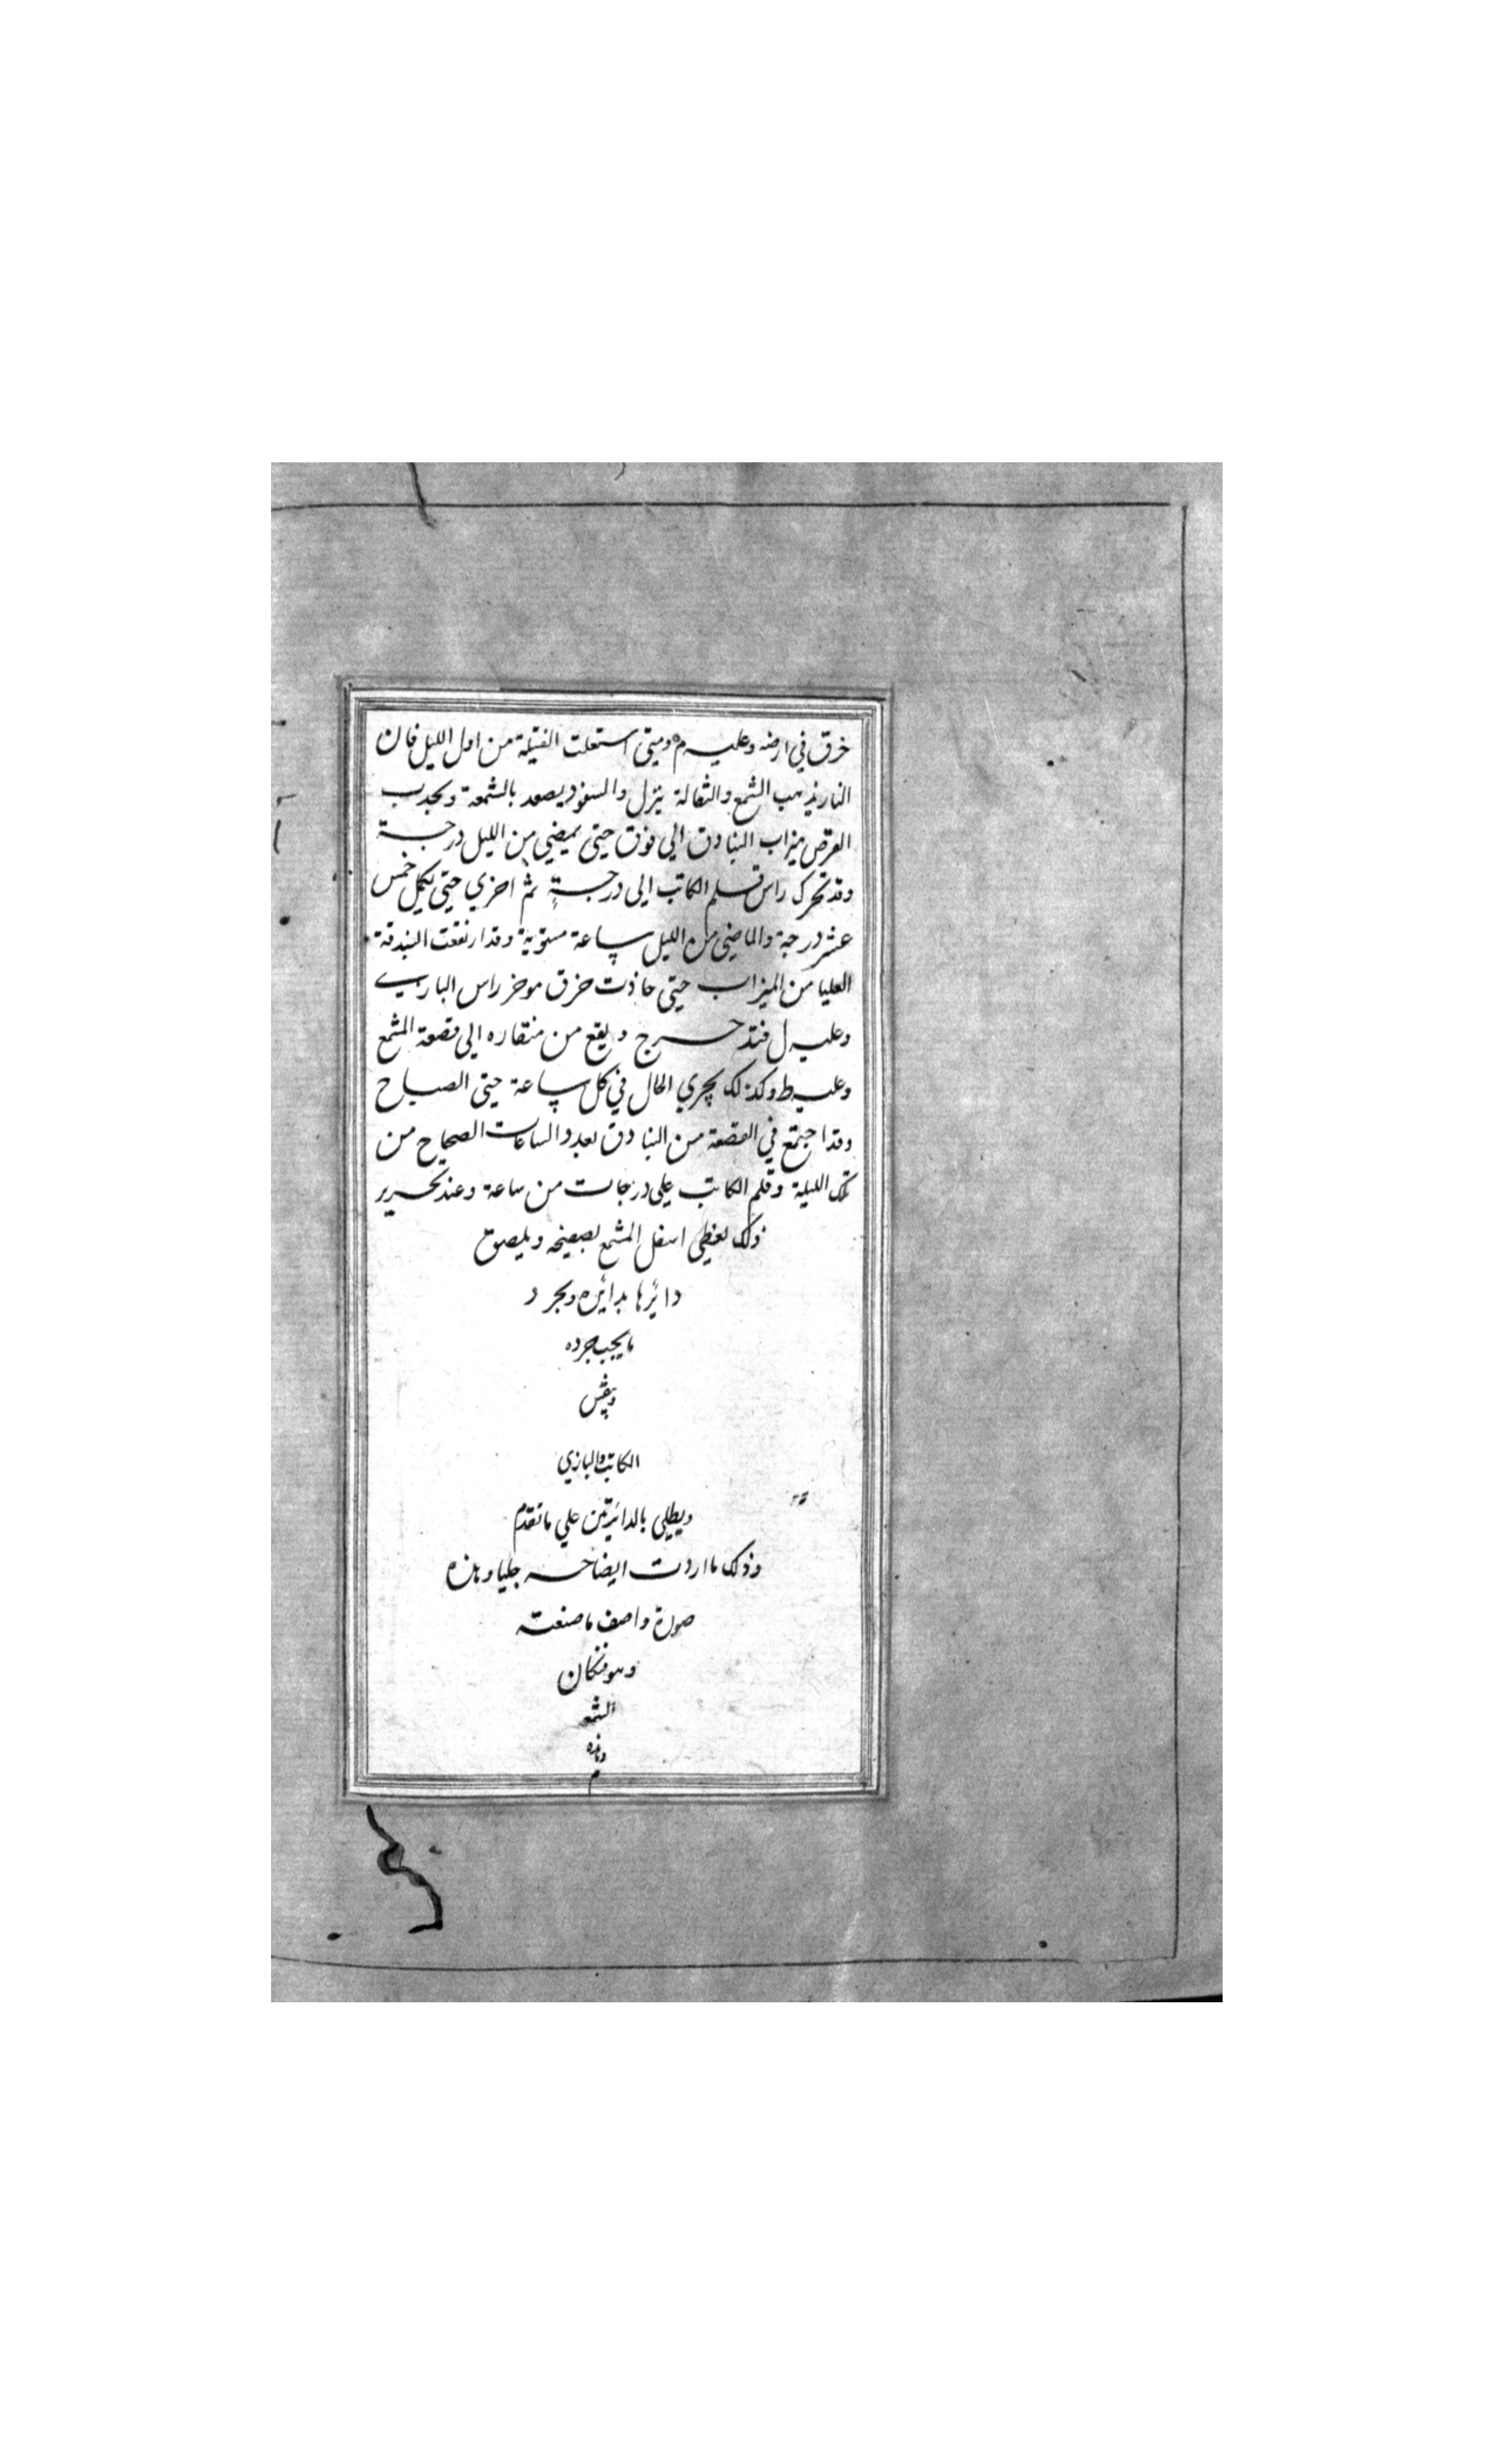 خرق في ارضه وعليه م ومتى استعلت الفتيلة من اول الليل فان
النار يذهب الشمع والثقالة ينزل والسفود يصعد بالشمعة ويجذب
القرص ميزاب البنادق الى فوق حتى يمضي من الليل درجة
وقد تحرك راس قلم الكاتب الى درجة ثم اخري حتى يكمل خمس
عشر درجة والماضي من الليل ساعة مستوية وقد ارتفعت البندقة
العليا من الميزاب حتى حاذت خرق موخر راس البازي
وعليه ل فتدحرج ويقع من منقاره الى قصعة الشمع
وعليه ط وكذلك يجري الحال في كل ساعة حتى الصباح
وقد اجتمع في القصعة من البنادق بعدد الساعات الصحاح من
تلك الليلة وقلم الكاتب على درجات من ساعة وعند تحرير
ذلك يغطي اسفل المشمع بصفيحه ويلصق
دائرها بدائره ويجرد
ما يجب جرده
وينقش
الكاتب والبازي
ويطلي بالدائرتين علي ما تقدم
وذلك ما اردت ايضاحه جليا وهذه
صورة واصف ما صنعته
وهو فنكان
الشمع
وهذه